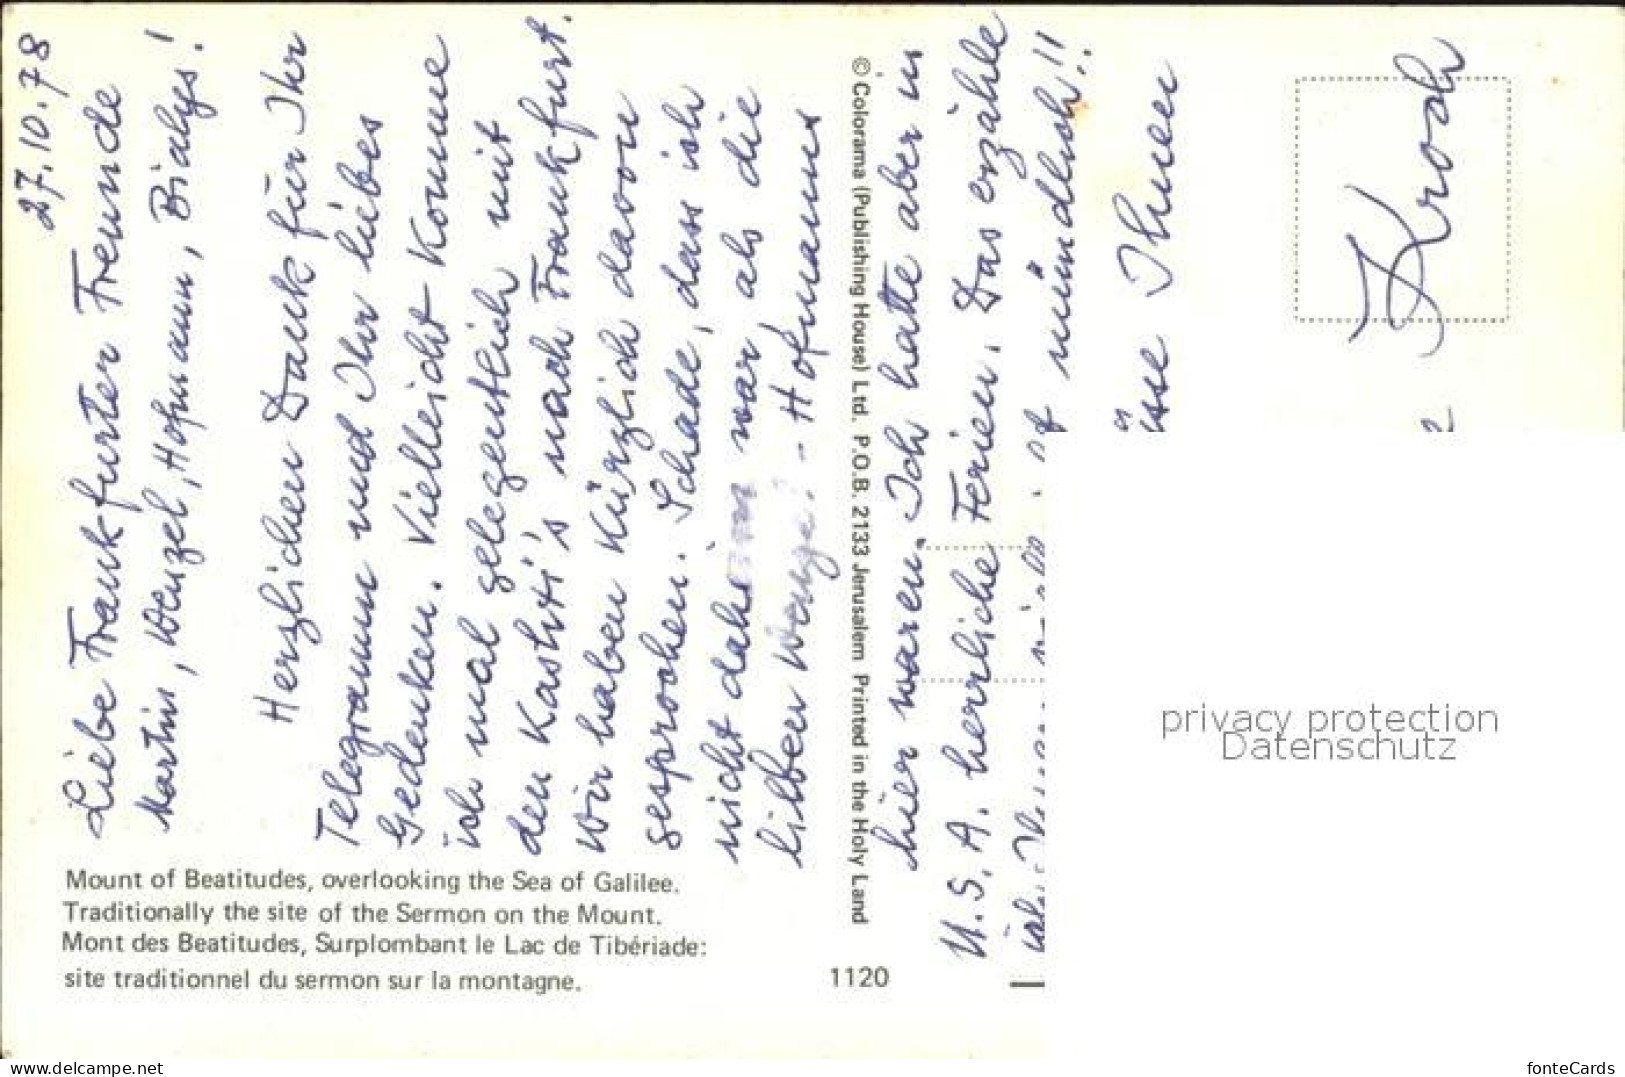 27.10.78
Liebe Frankfurter Freunde
Martin, Wenzel, Hofmann, Bialys!
Herzlichen Dank für Ihr
Telegramm und Ihr liebes
Gedenken. Vielleicht komme
ich mal gelegentlich mit
den Kashti's nach Frankfurt.
Wir haben kürzlich davon
gesprochen. Schade, dass ich
nicht daheim war, als die
lieben - Hofmanns
hier waren. Ich hatte aber in
U.S.A. herrliche Ferien. Das erzähle
ich mündlich!!
Ihnen
Kroch
© Colorama (Publishing House) Ltd. P.O.B. 2133 Jerusalem Printed in the Holy Land
Mount of Beatitudes, overlooking the Sea of Galilee.
Traditionally the site of the Sermon on the Mount.
Mont des Beatitudes, Surplombant le Lac de Tibériade:
site traditionnel du sermon sur la montagne.
1120
privacy protection
Datenschutz
www.delcampe.net
fonteCards